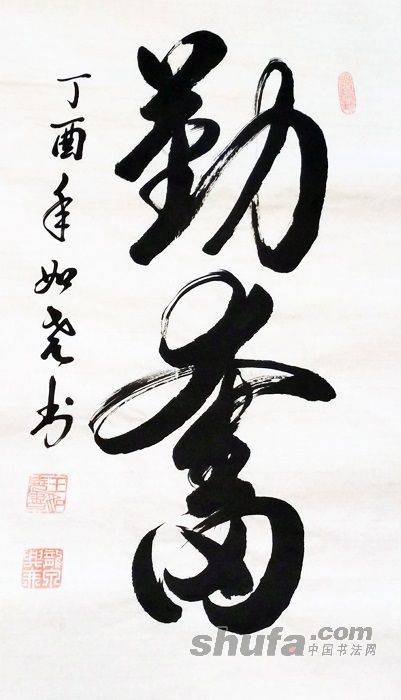 勤奮
丁酉年如堯书
shufa.com
中国书法网